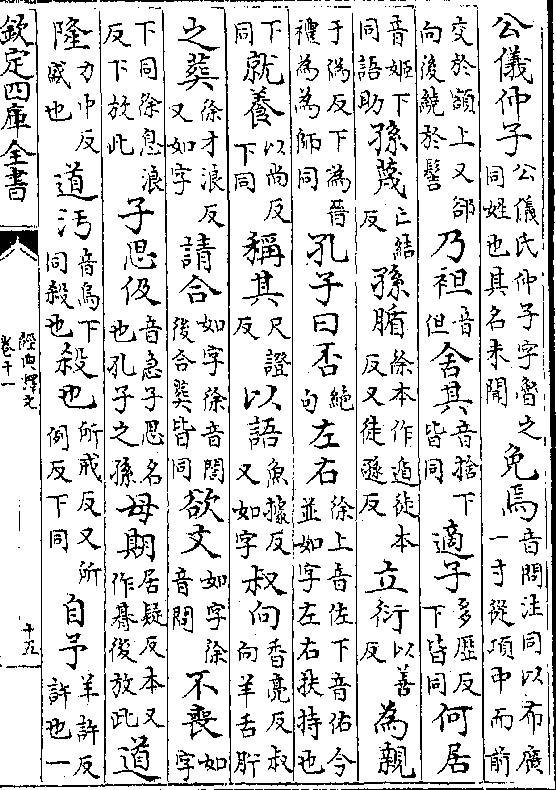 公儀仲子公儀氏仲子字魯之同姓也其名未聞免焉音問注同以布廣一寸從項中而前
交於額上又郤向後繞於髻乃袒音但舍其音捨下皆同適子多歷反下皆同何居
音姬下同語助孫蔑亡結反孫腯徐本作遁徒本反又徒遜反立衍以善反為親
于偽反下為晉禮為為師同孔子曰否絶句左右徐上音佐下音佑今並如字左右扶持也
下同就養以尚反下同稱其尺證反以語魚據反又如字叔向香亮反叔向羊舌肸
之葬徐才浪反又如字請合如字徐音閤後合葬皆同欲文如字徐音問不喪如字
下同徐息浪反下放此子思伋音急子思名也孔子之孫母期居疑反本又作朞後放此道
隆力中反盛也道汚音烏下同殺也殺也所戒反又所例反下同自予羊許反許也一
欽定四庫全書
經典釋文
卷十一
十五